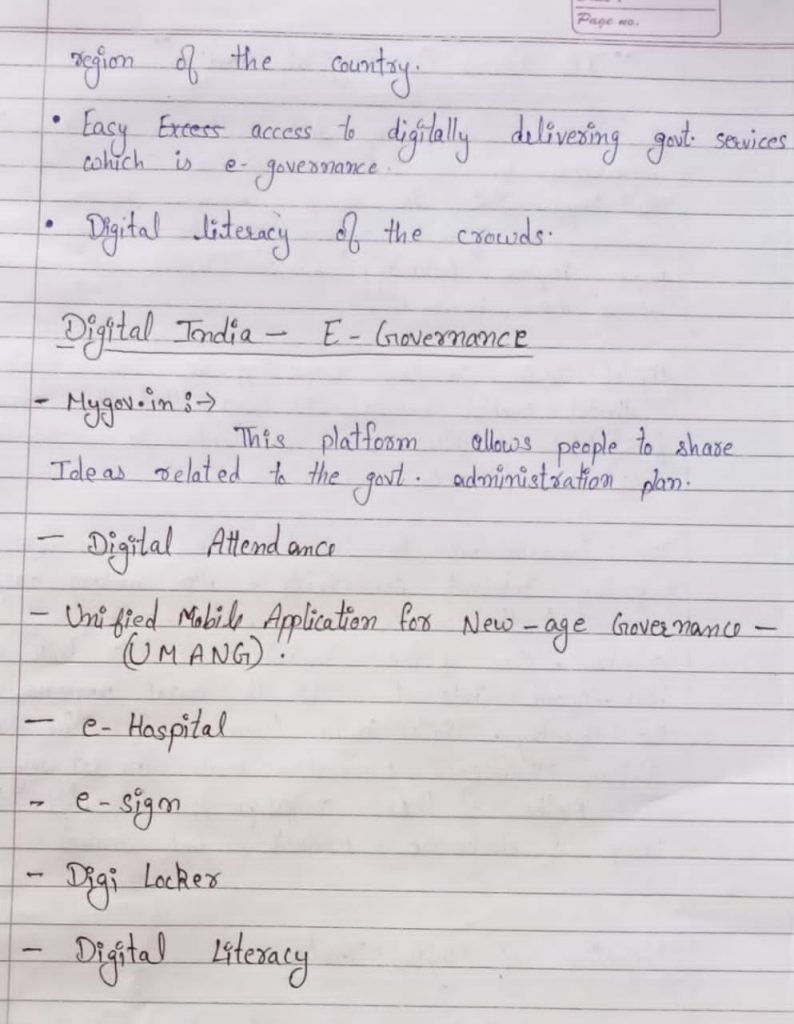 Page no.
region of the country.
• Easy Excess access to digitally delivering govt. services
which is e-governance.
• Digital literacy of the crowds.
Digital India – E-Governance
- Mygov.in :→
This platform allows people to share
Ideas related to the govt. administration plan.
- Digital Attendance
- Unified Mobile Application for New-age Governance –
(UMANG).
- e-Hospital
- e-sign
- Digi Locker
- Digital Literacy